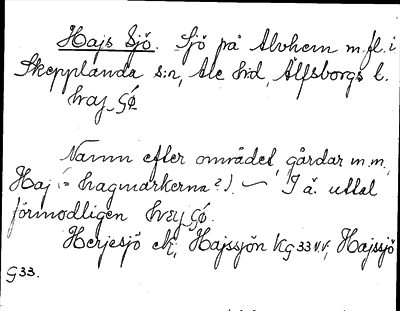 Hajs Sjö. Sjö på Alvhem m.fl. i
Skepplanda s:n, Ale h:d, Älfsborgs l.
Namn efter området, gårdar m.m.,
Haj (= hagmarkerna?). — I ä. uttal
förmodligen
Herjesjö ek, Hajssjön KG33 v.v, Hajssjö
G33.